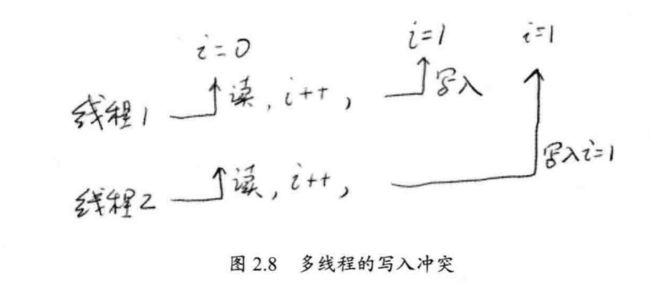 i=0 i=1 i=1
线程1 读, i++, 写入
线程2 读, i++, 写入i=1
图 2.8 多线程的写入冲突